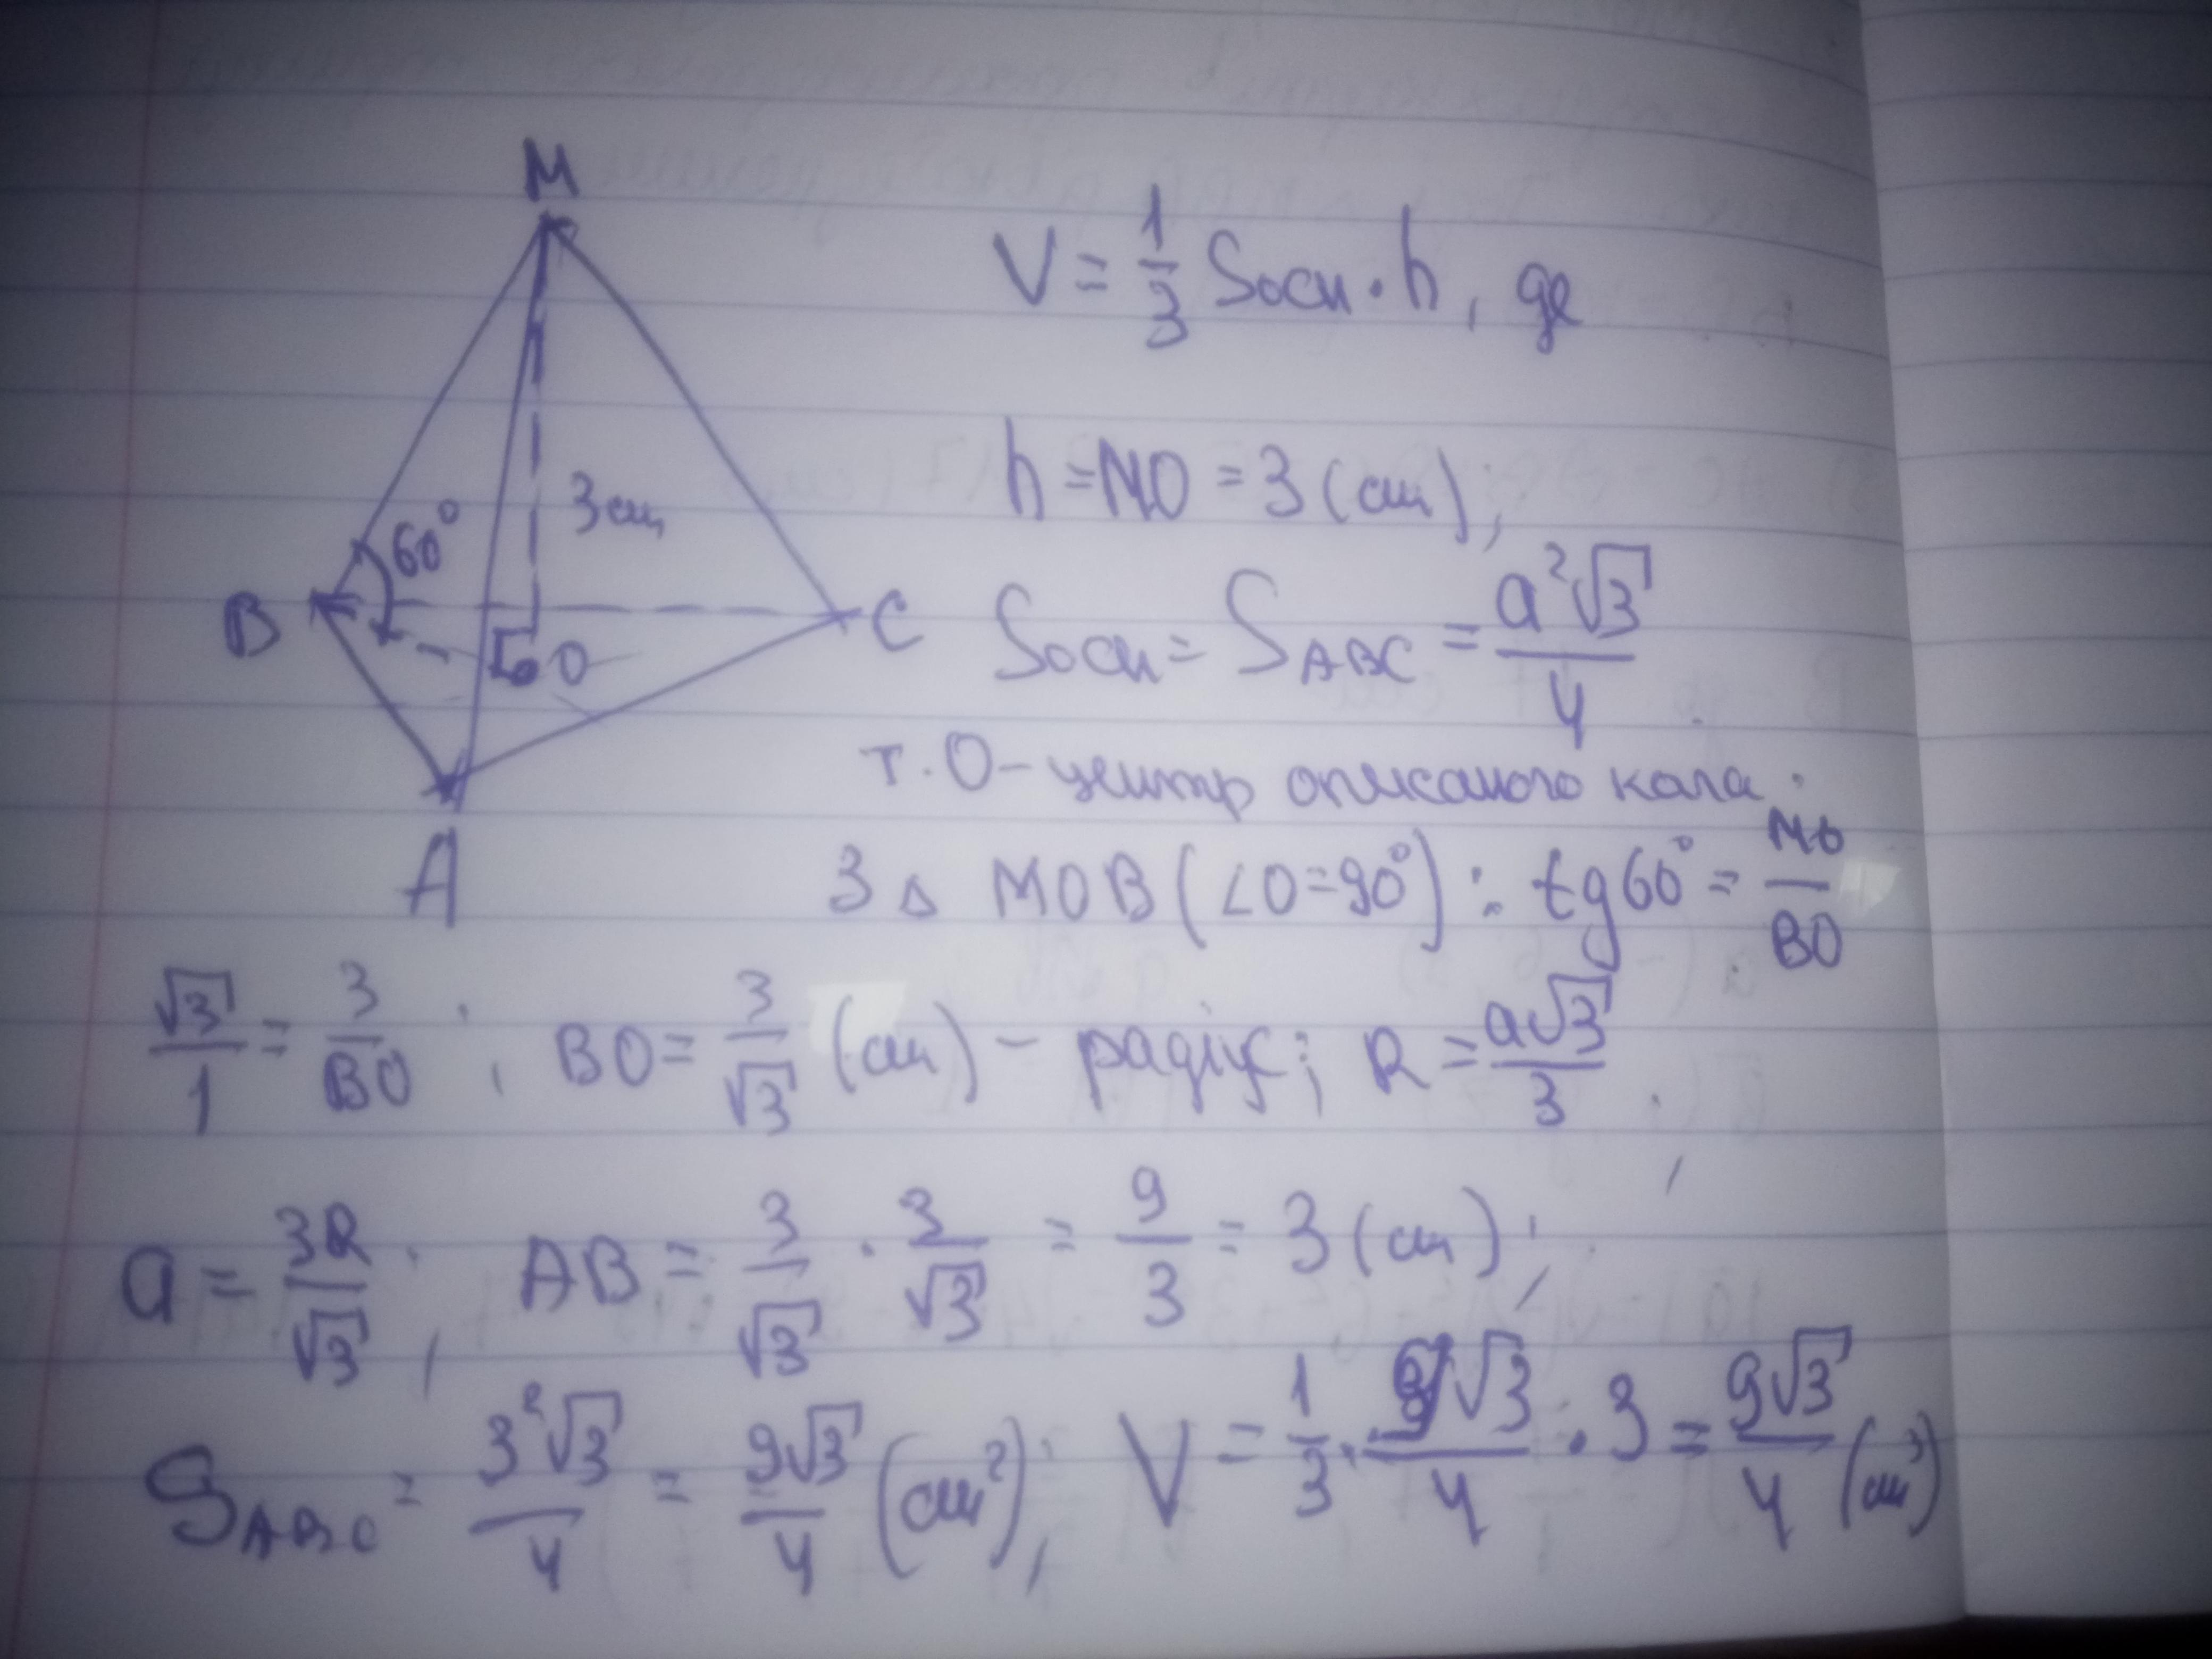 M
V = 1/3 Sосн · h, де
3см
60°
B
O
C
A
h = MO = 3 (см);
Sосн = S ABC = a²√3/4
т. O - центр описаного кола.
З △ MOB (∠O=90°): tg60° = MO/BO
√3/1 = 3/BO; BO = 3/√3 (см) - радіус; R = a√3/3;
a = 3R/√3; AB = 3/√3 · 3/√3 = 9/3 = 3 (см);
S ABC = 3²√3/4 = 9√3/4 (см²); V = 1/3 · 9√3/4 · 3 = 9√3/4 (см³)